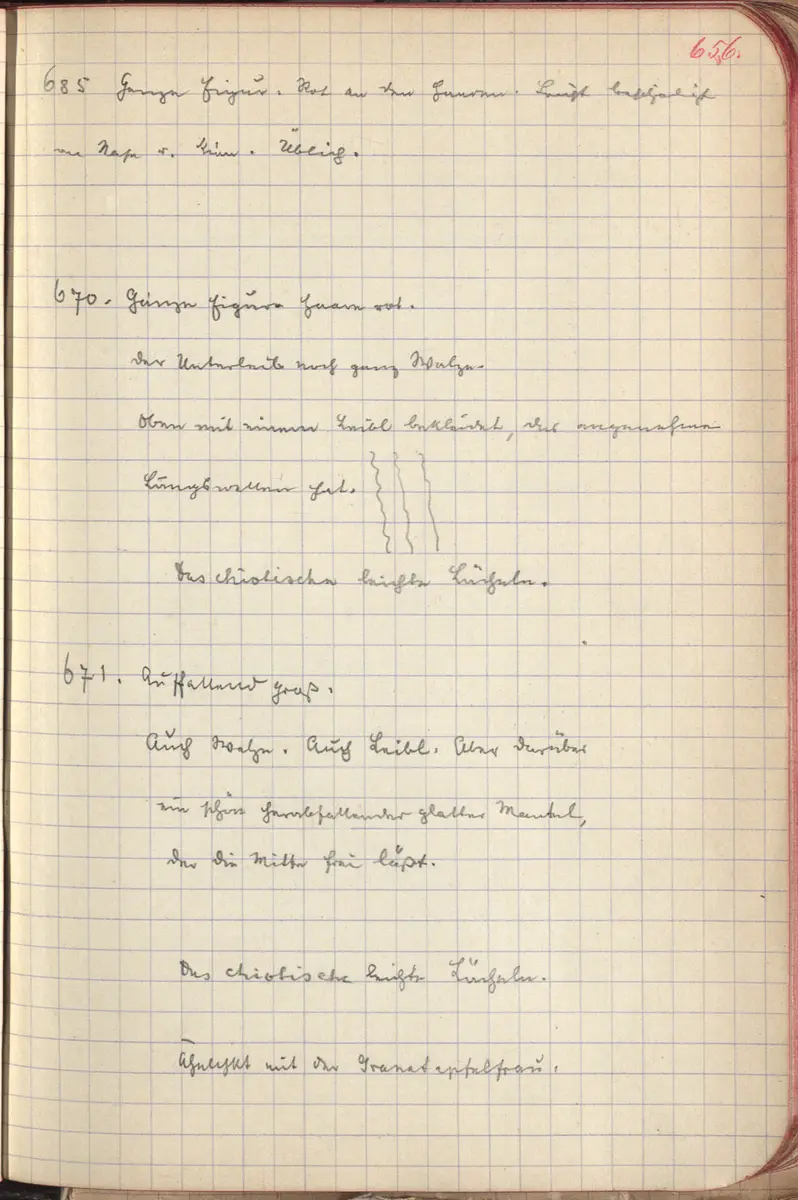 656.
685 Ganze Figur. Rot an den Haaren. Leicht beschädigt
an Nase u. Kinn. Üblich.
670. Ganze Figur. Haare rot.
Der Unterleib noch ganz Walze.
Oben mit einem Leibl bekleidet, das angenehme
Längswellen hat.
Das chiotische leichte Lächeln.
671. Auffallend groß.
Auch Walze. Auch Leibl. Aber darüber
ein schön herabfallender glatter Mantel,
der die Mitte frei läßt.
Das chiotische leichte Lächeln.
Ähnlichkt mit der Granatapfelfrau.